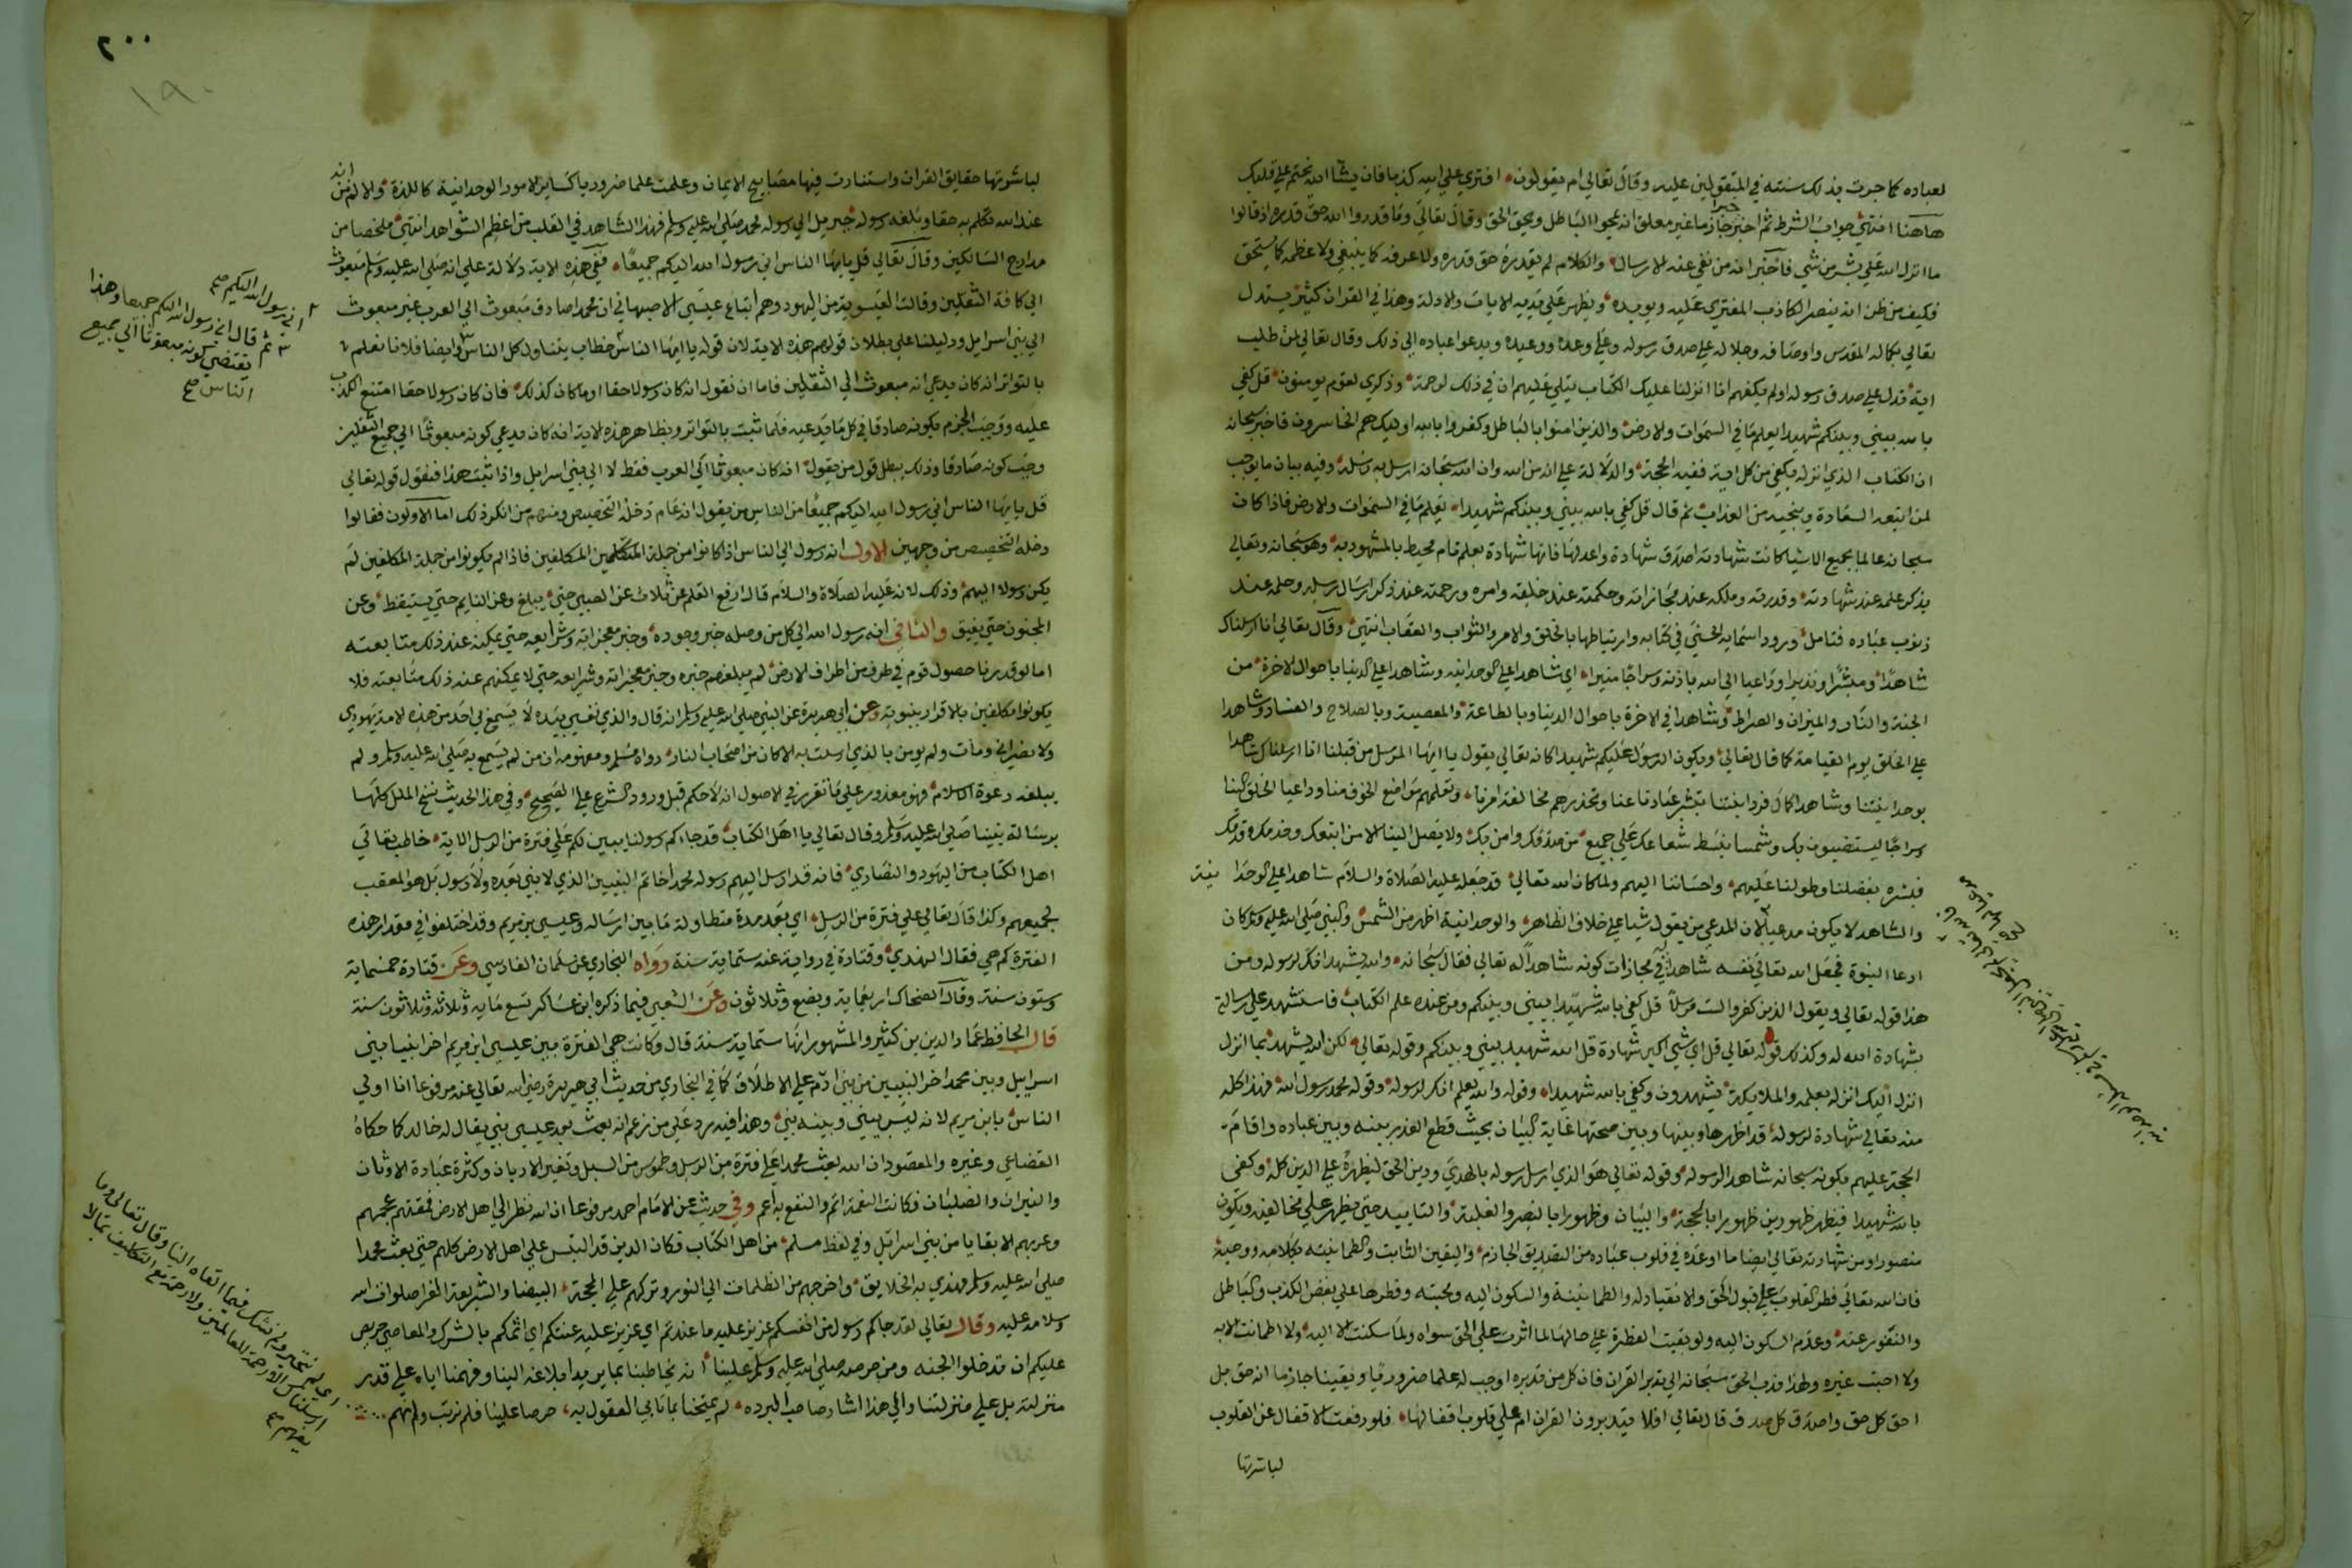 لعباده كما جرت بذلك سنته في المتقولين عليه وقال تعالى ام يقولون افترى على الله كذبا فان يشا الله يختم على قلبك
هاهنا انتهى جواب الشرط ثم اخبر خبرا جازما غير معلق انه يمحوا الباطل ويحق الحق وقال تعالى وما قدروا الله حق قدره اذ قالوا
ما انزل الله على بشر من شي فاخبر انه من نفي عنه الارسال والكلام لم يقدره حق قدره ولا عرفه كما ينبغي ولا عظمه كما يستحق
فكيف من ظن انه ينصر الكاذب المفتري عليه ويويده ويظهر على يديه الايات والادلة وهذا في القران كثير يستدل
تعالى بكماله المقدس واوصافه وجلاله على صدق رسوله وعلى وعده ووعيده ويدعوا عباده الى ذلك وقال تعالى لمن طلب
اية تدل على صدق رسوله اولم يكفهم انا انزلنا عليك الكتاب يتلى عليهم ان في ذلك لرحمة وذكرى لقوم يومنون قل كفى
بالله بيني وبينكم شهيدا يعلم ما في السموات والارض والذين امنوا بالباطل وكفروا بالله اوليك هم الخاسرون فاخبر سبحانه
ان الكتاب الذي انزله يكفي من كل اية ففيه الحجة والدلالة على انه من الله وان الله سبحانه ارسل به رسله وفيه بيان ما يوجب
لمن اتبعه السعادة وينجيه من العذاب ثم قال قل كفى بالله بيني وبينكم شهيدا يعلم ما في السموات والارض فاذا كان
سبحانه عالما بجميع الاشيا كانت شهادته اصدق شهادة واعدلها فانها شهادة بعلم تام محيط بالمشهود به وهو سبحانه وتعالى
يذكر علمه عند شهادته وقدرته وملكه عند مجازاته وحكمته عند خليقته وامره ورحمته عند ذكر ارسال رسله وحلمه عند
ذنوب عباده فتامل ورود اسمايه الحسنى في كتابه وارتباطها بالخلق والامر والثواب والعقاب انتهى وقال تعالى انا ارسلناك
شاهدا ومبشرا ونذيرا وداعيا الى الله باذنه وسراجا منيرا اي شاهدا على الوحدانيه وشاهدا على الدنيا باحوال الاخرة من
الجنة والنار والميزان والصراط وشاهدا في الاخرة باحوال الدنيا وبالطاعة والمعصية وبالصلاح والفساد وشاهدا
على الخلق يوم القيامة كما قال تعالى ويكون الرسول عليكم شهيدا كانه تعالى يقول يا ايها المرسل من قبلنا انا ارسلناك شاهدا
بوحدانيتنا وشاهدا كمال فردانيتنا تبشر عبادنا عنا وتحذرهم مخالفة امرنا وتعلمهم مواضع الخوف منا وداعيا الخلق الينا
وسراجا يستضيون بك وشمسا تبسط شعاعك على جميع من صدقك وامن بك ولا يصل الينا الا من اتبعك وخدمك وقدمك
فبشره بفضلنا وطولنا عليهم واحساننا اليهم ولما كان الله تعالى قد جعله عليه الصلاة والسلام شاهدا على الوحدا نية
والشاهد لا يكون مدعيا لان المدعي من يقول شيا على خلاف الظاهر والوحدانية اظهر من الشمس والنبي صلى الله عليه وسلم كان
ادعا النبوة فجعل الله تعالى نفسه شاهدا في مجازات كونه شاهدا له تعالى فقال سبحانه والله يشهد انك لرسوله ومن
هذا قوله تعالى ويقول الذين كفروا لست مرسلا قل كفى بالله شهيدا بيني وبينكم ومن عنده علم الكتاب فاستشهد على رسالته
بشهادة الله له وكذلك قوله تعالى قل اي شي اكبر شهادة قل الله شهيد بيني وبينكم وقوله تعالى لكن الله يشهد بما انزل
انزل اليك انزله بعلمه والملايكة يشهدون وكفى بالله شهيدا وقوله والله يعلم انك لرسوله وقوله محمد رسول الله فهذا كله
منه تعالى شهادة لرسوله قد اظهرها وبينها وبين صحتها غاية البيان بحيث قطع العذر بينه وبين عباده واقام
الحجة عليهم بكونه سبحانه شاهدا لرسوله وقوله تعالى هو الذي ارسل رسوله بالهدى ودين الحق ليظهره على الدين كله وكفى
بالله شهيدا فيظهر ظهورين ظهورا بالحجة والبيان وظهورا بالنصر والغلبة والتاييد حتى يظهر على مخالفيه ويكون
منصورا ومن شهادته تعالى ايضا ما اودعه في قلوب عباده من التصديق الجازم واليقين الثابت والطمانينه بكلامه ووحيه
فان الله تعالى فطر القلوب على قبول الحق والانقياد له والطمانينة والسكون اليه ومحبته وفطرها على بغض الكذب والباطل
والنفور عنه وعدم السكون اليه ولو بقيت الفطرة على حالها لما اثرت على الحق سواه ولما سكنت الا اليه ولا اطمانت الا به
ولا احبت غيره ولهذا ندب الحق سبحانه الى تدبر القران فان كل من تدبره اوجب له علما ضروريا ويقينا جازما انه حق بل
احق كل حق واصدق كل صدق قال تعالى افلا يتدبرون القران ام على قلوب اقفالها فلو رفعت الاقفال عن القلوب
لباشرتها
٢٠٠
١٩٠
لباشرتها حقايق القران واستنارت فيها مصابيح الايمان وعلمت علما ضروريا كساير الامور الوجدانية كاللذة والالم انه من
عند الله تكلم به حقا وبلغه رسوله جبريل الى رسوله محمد صلى الله عليه وسلم فهذا الشاهد في القلب من اعظم الشواهد انتهى ملخصا من
مدارج السالكين وقال تعالى قل يايها الناس اني رسول الله اليكم جميعا ففي هذه الاية دلالة على انه صلى الله عليه وسلم مبعوث
الى كافة الثقلين وقالت العيسوية من اليهود وهم اتباع عيسى الاصبهاني ان محمدا صادق مبعوث الى العرب غير مبعوث
الى بني اسرايل ودليلنا على بطلان قولهم هذه الاية لان قوله يا ايها الناس خطاب يتناول كل الناس وايضا فلانا نعلم
بالتواتر انه كان يدعي انه مبعوث الى الثقلين فاما ان نقول انه كان رسولا حقا او ما كان كذلك فان كان رسولا حقا امتنع الكذب
عليه ووجب الجزم بكونه صادقا في كل ما يدعيه فلما ثبت بالتواتر وبظاهر هذه الاية انه كان يدعي كونه مبعوثا الى جميع الثقلين
وجب كونه صادقا وذلك يبطل قول من يقول انه كان مبعوثا الى العرب فقط لا الى بني اسرايل واذا ثبت هذا فنقول قوله تعالى
قل يايها الناس اني رسول الله اليكم جميعا من الناس من يقول انه عام دخله التخصيص ومنهم من انكر ذلك اما الاولون فقالوا
دخله التخصيص من وجهين الاول انه رسول الى الناس اذا كانوا من جملة المكلفين فاذا لم يكونوا من جملة المكلفين لم
يكن رسولا اليهم وذلك لانه عليه الصلاة والسلام قال رفع القلم عن ثلاث عن الصبي حتى يبلغ وعن النايم حتى يستيقظ وعن
المجنون حتى يفيق والثاني انه رسول الله الى كل من وصله خبر وجوده وخبر معجزاته وشرايعه حتى يمكنه عند ذلك متابعته
اما لو قدرنا حصول قوم في طرف من اطراف الارض لم يبلغهم خبره وخبر معجزاته وشرايعه حتى لا يمكنهم عند ذلك متابعته فلا
يكونوا مكلفين بالاقرار بنبوته وعن ابي هريرة عن النبي صلى الله عليه وسلم انه قال والذي نفسي بيده لا يسمع بي احد من هذه الامة يهودي
ولا نصراني ومات ولم يومن بالذي ارسلت به الا كان من اصحاب النار رواه مسلم ومفهومه ان من لم يسمع به صلى الله عليه وسلم ولم
يبلغه دعوة الاسلام فهو معذور على ما تقرر في الاصول انه لا حكم قبل ورود الشرع على الصحيح وفي هذا الحديث نسخ الملل كلها
برسالة نبينا صلى الله عليه وسلم وقال تعالى يا اهل الكتاب قد جاءكم رسولنا يبين لكم على فترة من الرسل الاية خاطب تعالى
اهل الكتاب من اليهود والنصارى فانه قد ارسل اليهم رسوله محمدا خاتم النبيين الذي لا نبي بعده ولا رسول بل هو المعقب
لجميعهم وكذا قال تعالى على فترة من الرسل اي بعد مدة متطاولة ما بين ارساله وعيسى بن مريم وقد اختلفوا في مقدار هذه
الفترة كم هي فقال النهدي وقتادة في رواية عنه ستماية سنة رواه البخاري عن سلمان الفارسي وعن قتادة خمسماية
وستون سنة وقال الضحاك اربعماية وبضع وثلاثون وعن الشعبي فيما ذكره ابن عساكر تسع ماية وثلاثة وثلاثون سنة
قال الحافظ عماد الدين بن كثير والمشهور انها ستماية سنة قال وكانت هي الفترة بين عيسى ابن مريم اخر انبيا بني
اسراييل وبين محمد اخر النبيين من بني ادم على الاطلاق كما في البخاري من حديث ابي هريرة رضي الله تعالى عنه مرفوعا انا اولى
الناس بابن مريم لانه ليس بيني وبينه نبي وهذا فيه رد على من زعم انه بعث بعد عيسى نبي يقال له خالد كما حكاه
القضاعي وغيره والمقصود ان الله بعث محمدا على فترة من الرسل وطموس من السبل وتغير الاديان وكثرة عبادة الاوثان
والنيران والصلبان فكانت النعمة اتم والنفع به اعم وفي حديث عن الامام احمد مرفوعا ان الله نظر الى اهل الارض فمقتهم عجمهم
وعربهم الا بقايا من بني اسرايل وفي لفظ مسلم من اهل الكتاب فكان الدين قد التبس على اهل الارض كلهم حتى بعث محمدا
صلى الله عليه وسلم فهدي به الخلايق واخرجهم من الظلمات الى النور وتركهم على المحجة البيضا والشريعة الغرا صلوات الله
وسلامه عليه وقال تعالى لقد جاكم رسول من انفسكم عزيز عليه ما عنتم اي عزيز عليه عنتكم اي اثمكم بالشرك والمعاصي حريص
عليكم ان تدخلوا الجنه ومن حرصه صلى الله عليه وسلم علينا انه يخاطبنا بما يريد ابلاغه الينا وفهمنا اياه على قدر
منزلته بل على منزلتنا والى هذا اشار صاحب البرده لم يمتحنا بما تعيى العقول به حرصا علينا فلم نرتب ولم نهم
اني رسول الله اليكم صح
ثم قال اني رسول الله اليكم جميعا وهذا
يقتضي كونه مبعوثا الى جميع
الناس صح
اي لم نتحير ولم نشك فيما القاه الينا وقال تعالى وما
ارسلناك الا رحمة للعالمين ولا رحمة مع التكليف بما لا
يفهم صح